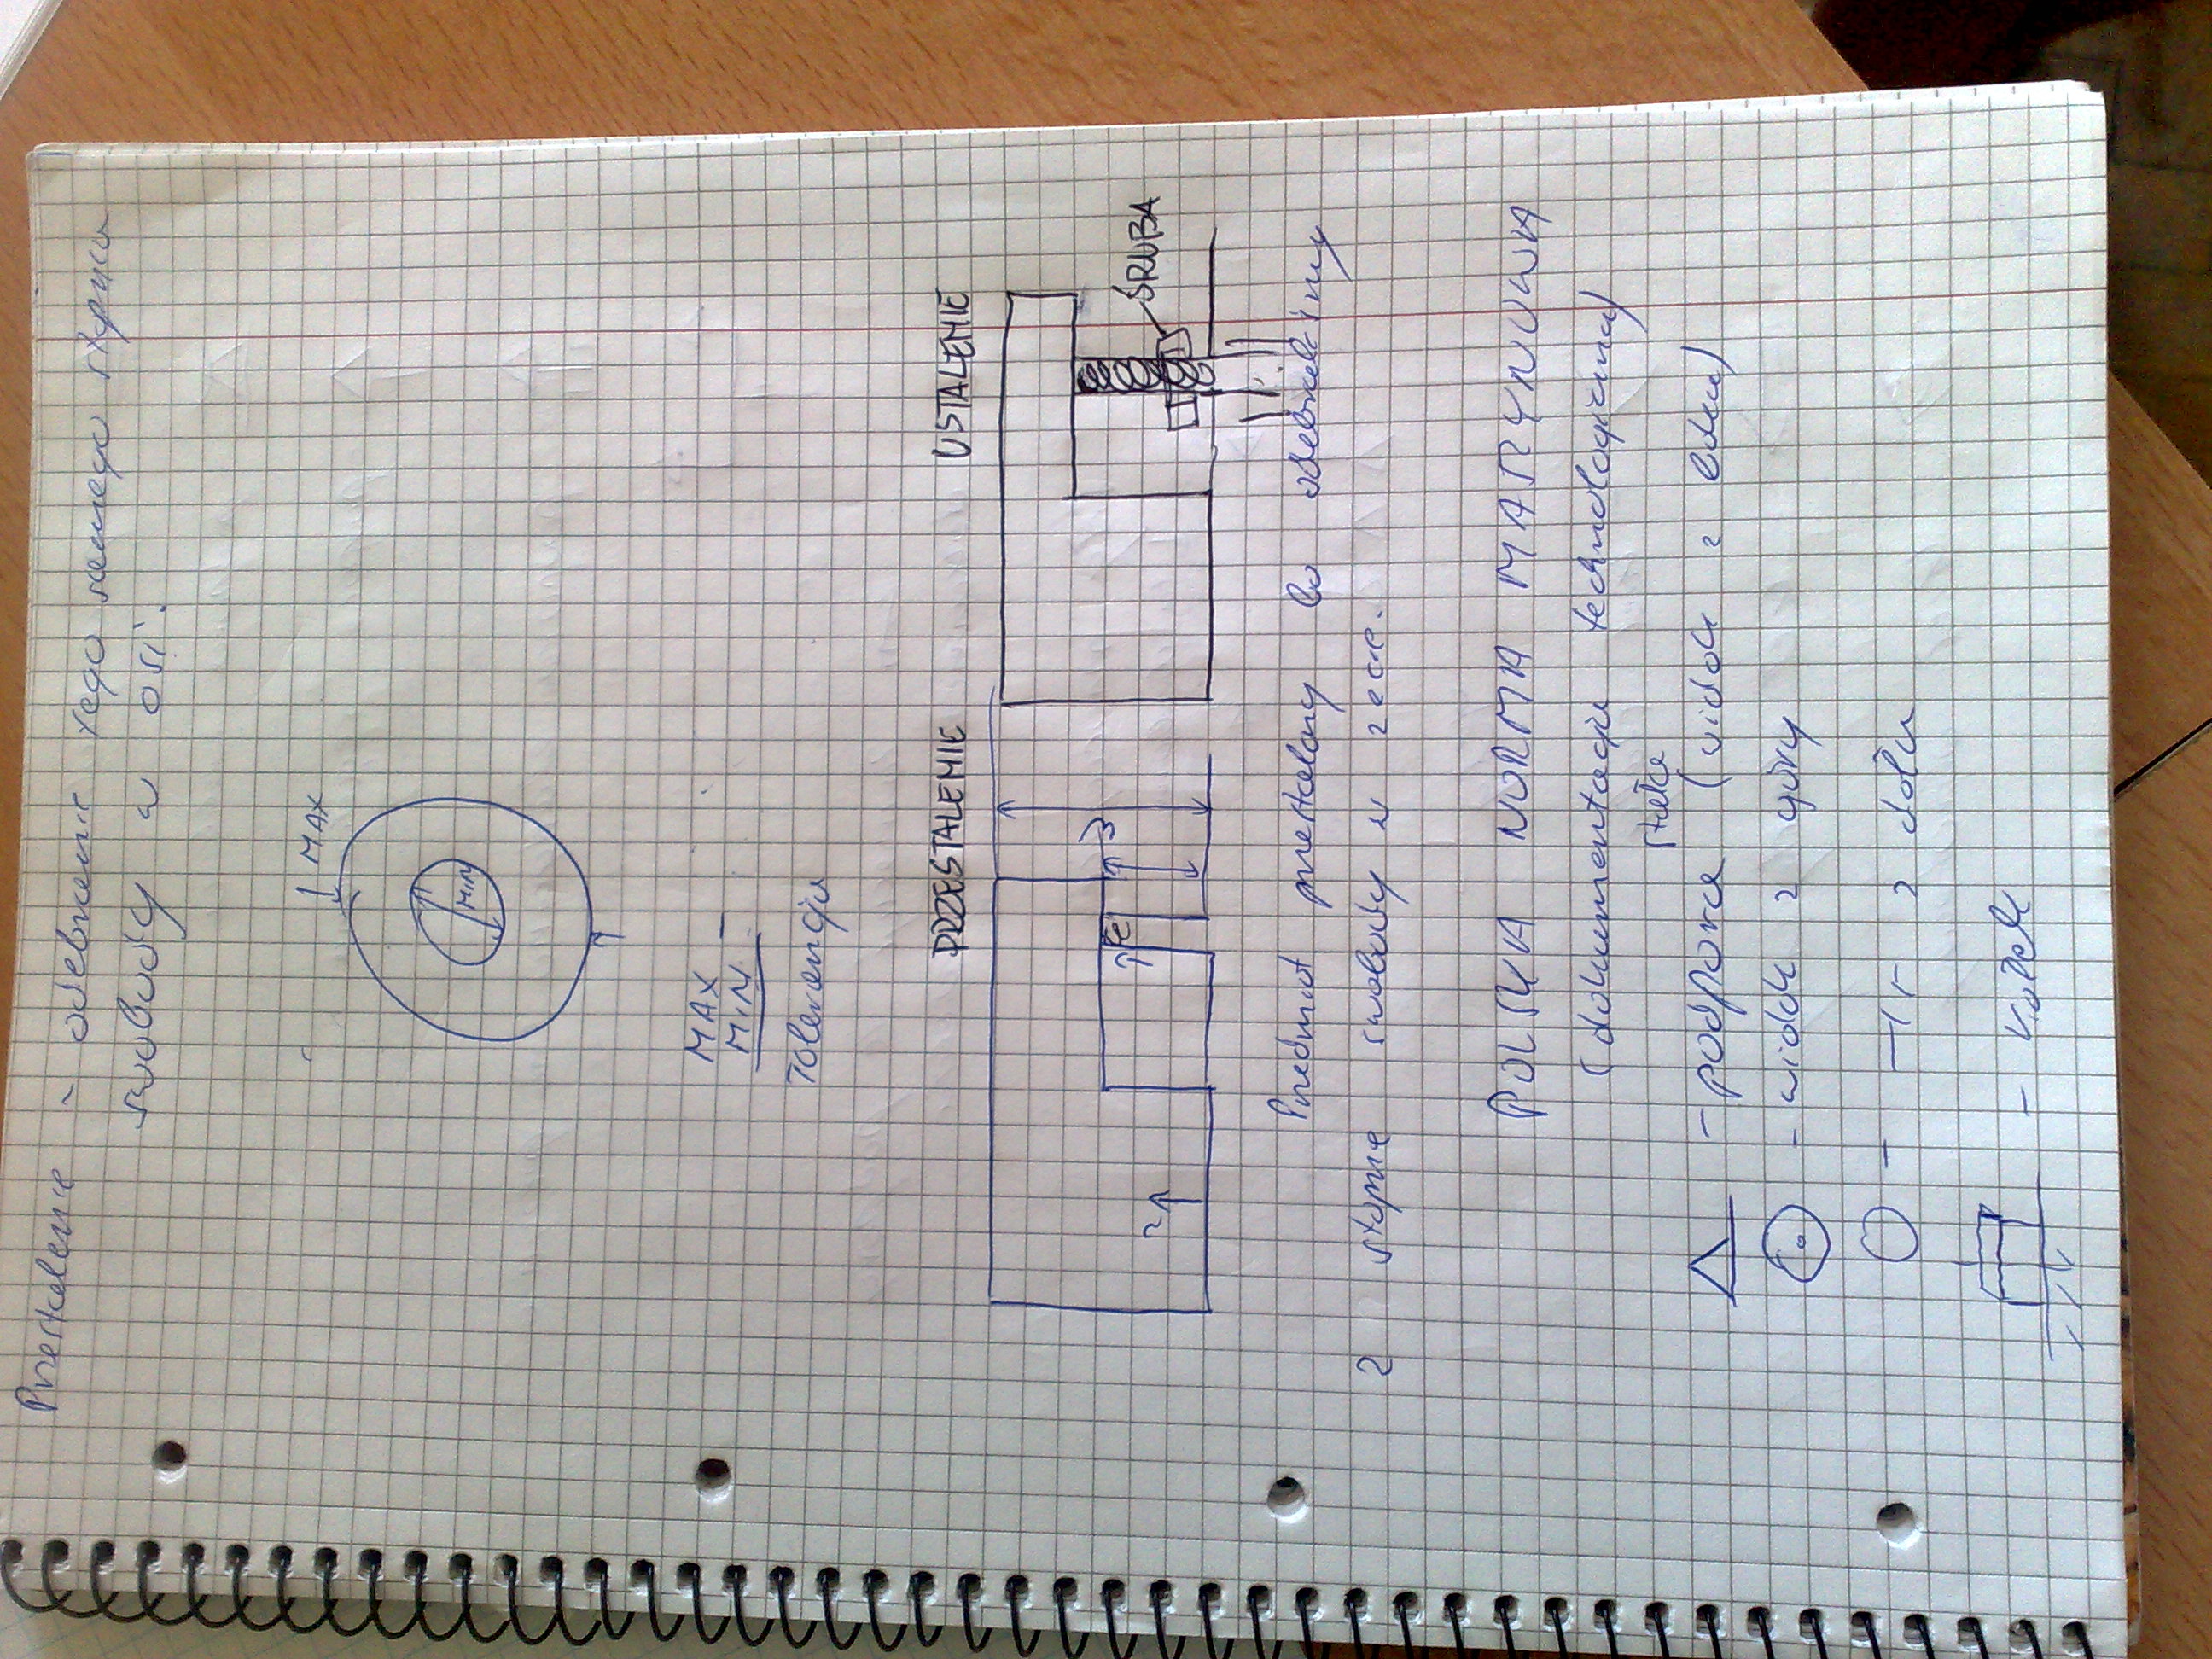 Przestalenie - odebranie tego samego stopnia
swobody w osi.
MAX
MIN
MAX
MIN -
Tolerancja
PRZESTALENIE
USTALENIE
ŚRUBA
Przedmiot przestalony bo odebraliśmy
2 stopnie swobody w zecie.
POLSKA NORMA MASZYNOWA
(dokumentacja technologiczna)
stała
- podpora (widok z boku)
- widok z góry
- -||- z dołu
- kołek